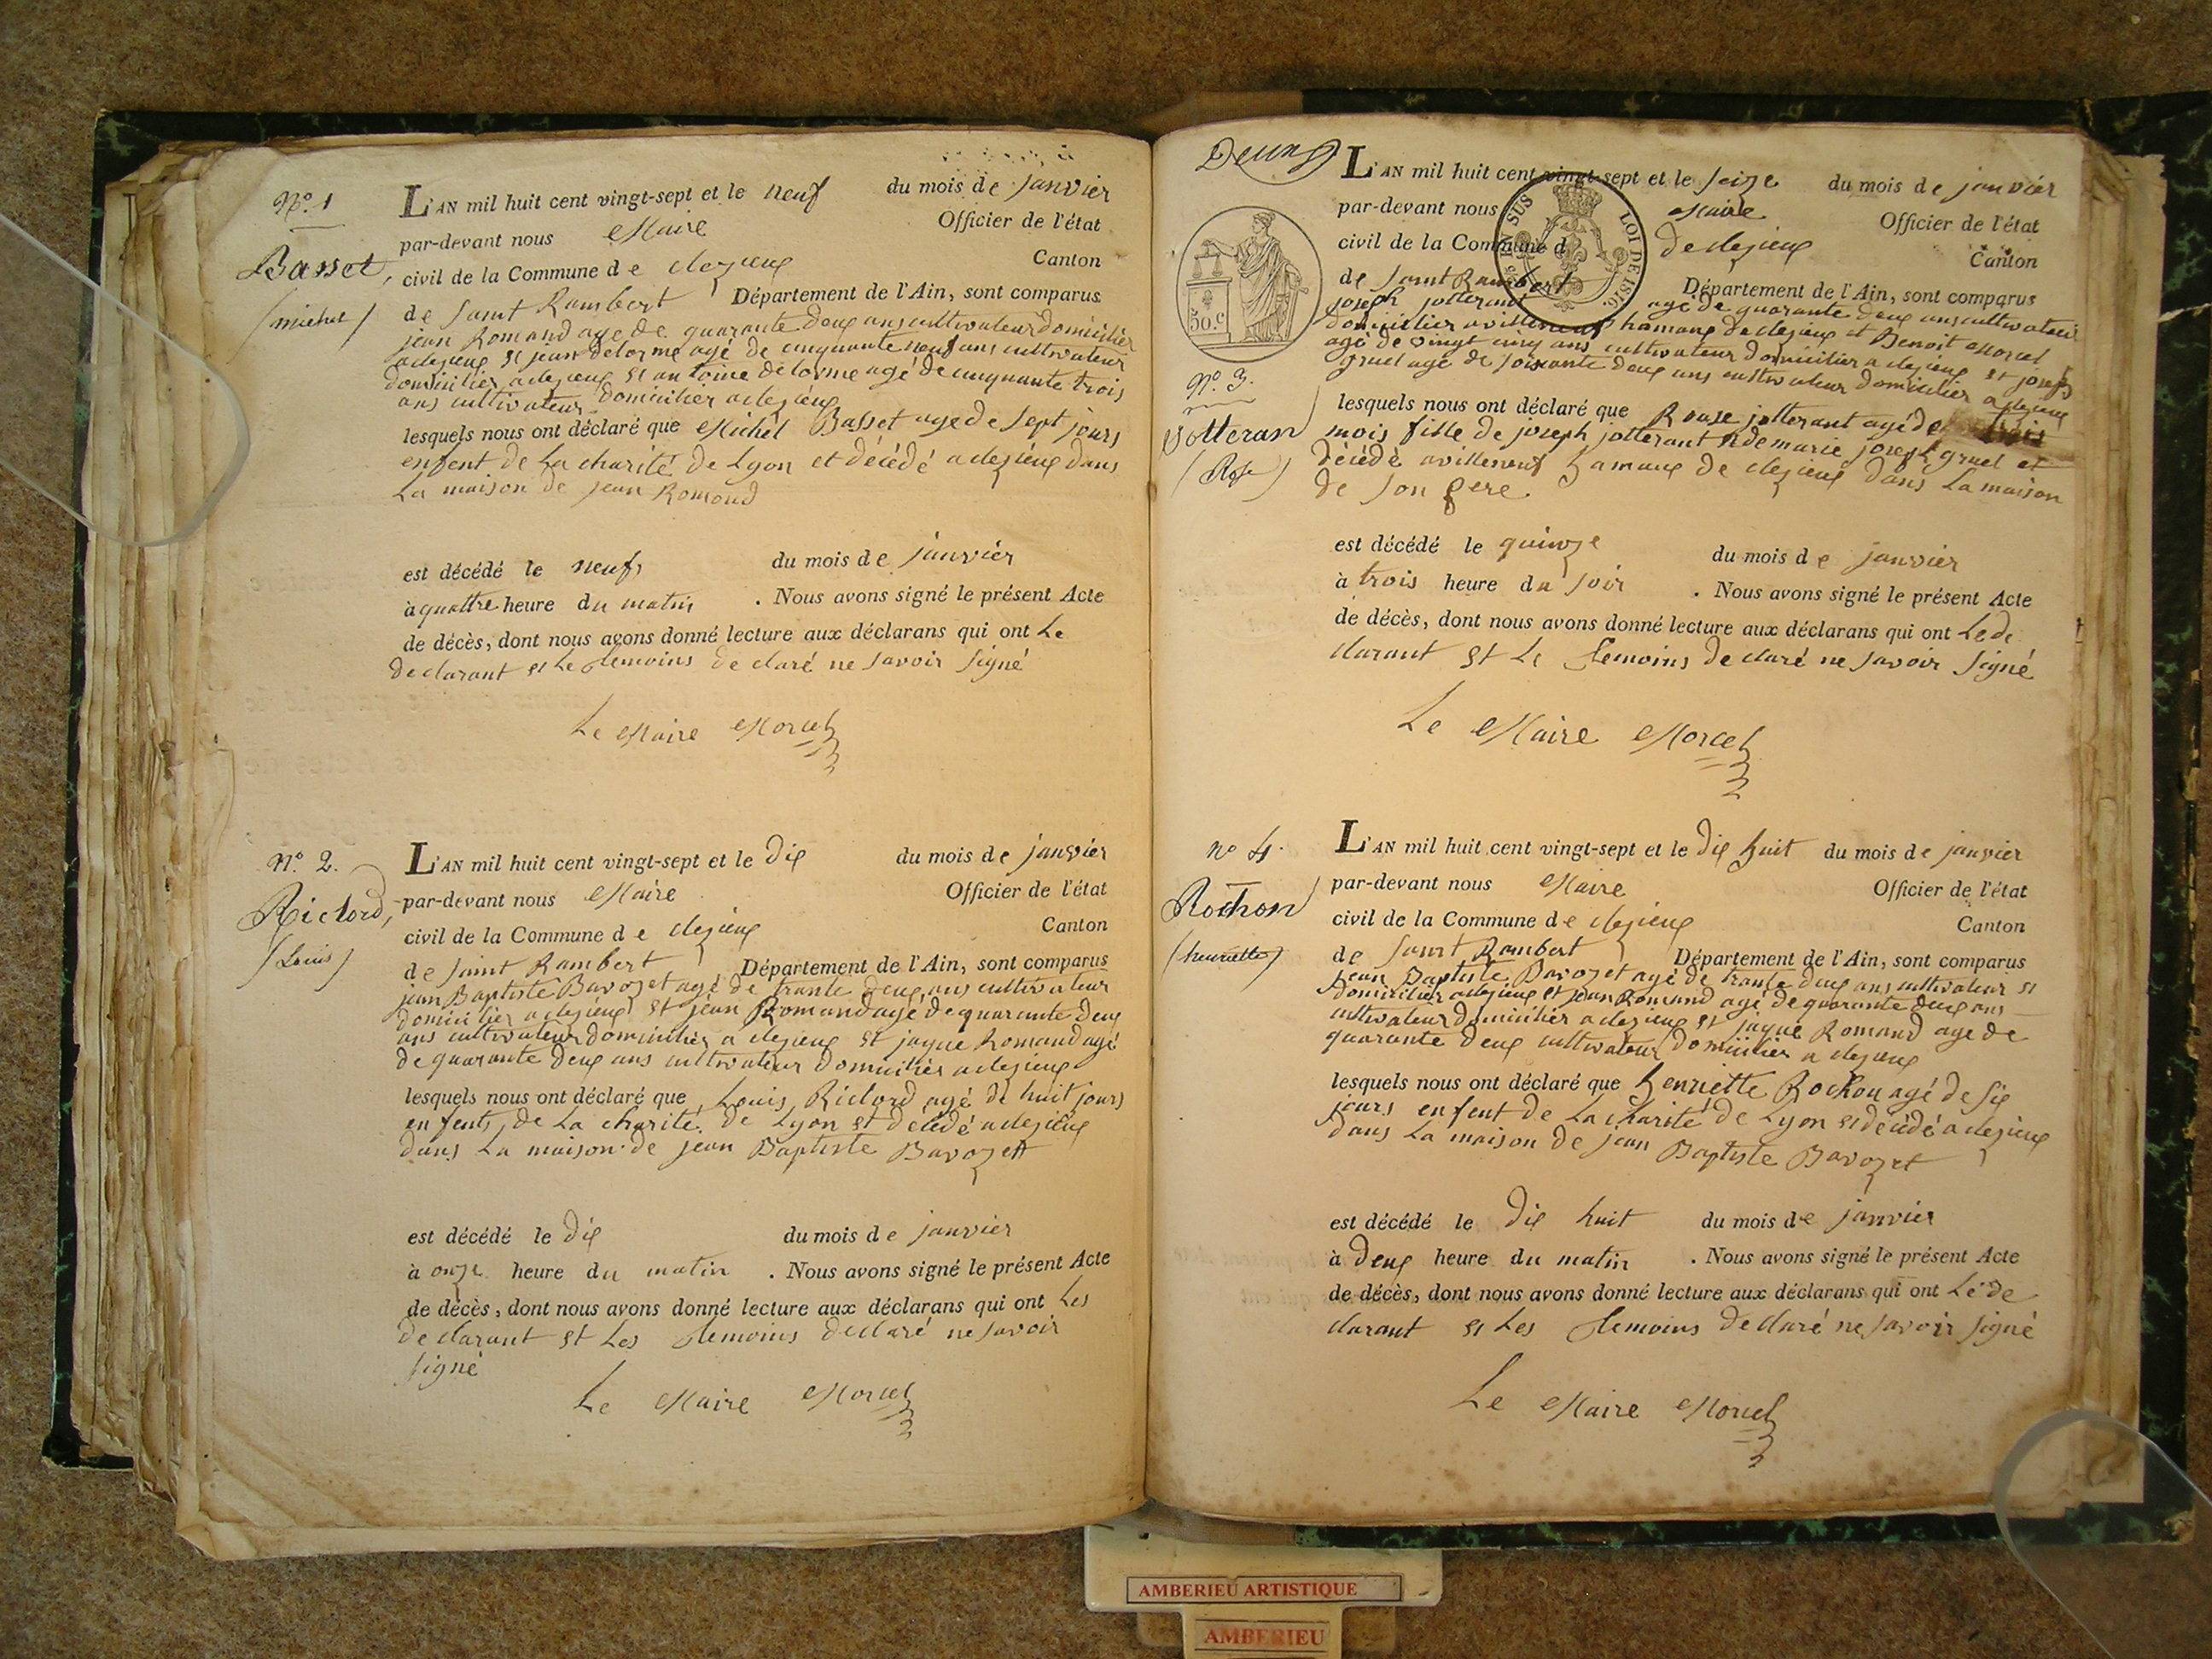 N.º 1
Basset,
(michel)
L'AN mil huit cent vingt-sept et le neuf du mois de janvier
par-devant nous Maire Officier de l'état
civil de la Commune de clezieux Canton
de saint Rambert Département de l'Ain, sont comparus
jean Romand age de quarante deux ans cultivateur domicilier
a clezieux et jean delorme agé de cinquante neuf ans cultivateur
domicilier a clezieux et antoine delorme agé de cinquante trois
ans cultivateur domicilier a clezieux
lesquels nous ont déclaré que Michel Basset age de sept jours
enfent de La charité de Lyon et décédé a clezieux dans
La maison de jean Romand
est décédé le neuf du mois de janvier
à quattre heure du matin . Nous avons signé le présent Acte
de décès, dont nous avons donné lecture aux déclarans qui ont Le
declarant et Le temoins de claré ne savoir signé
Le Maire Morcel
N.º 2.
Riclord,
(Louis)
L'AN mil huit cent vingt-sept et le dix du mois de janvier
par-devant nous Maire Officier de l'état
civil de la Commune de clezieux Canton
de saint Rambert Département de l'Ain, sont comparus
jean Baptiste Bavozet agé de trante deux ans cultivateur
domicilier a clezieux et jean Romand agé de quarante deux
ans cultivateur domicilier a clezieux et jaque Romand agé
de quarante deux ans cultivateur domicilier a clezieux
lesquels nous ont déclaré que Louis Riclord agé de huit jours
enfents de La charité de Lyon et décédé a clezieux
dans La maison de jean Baptiste Bavozett
est décédé le dix du mois de janvier
à onze heure du matin . Nous avons signé le présent Acte
de décès, dont nous avons donné lecture aux déclarans qui ont Les
de clarant et Les temoins declaré ne savoir
signé
Le Maire Morcel
Deux
50.c
EN SUS
LOI DE 1816.
N.º 3.
Jotteran
(Rose)
L'AN mil huit cent vingt-sept et le seize du mois de janvier
par-devant nous Maire Officier de l'état
civil de la Commune d de clezieux Canton
de saint Rambert Département de l'Ain, sont comparus
joseph jotterant agé de quarante deux ans cultivateur
domicilier a villeneuf hamaux de clezieux et Benoit Morcel
agé de vingt cinq ans cultivateur domicilier a clezieux et joseph
gruel agé de soixante deux ans cultivateur domicilier a clezieux
lesquels nous ont déclaré que Rouse jotterant agé de trois
mois fille de joseph jotterant et de marie joseph gruel et
décédé a villeneuf hamaux de clezieux dans La maison
de son pere
est décédé le quinze du mois de janvier
à trois heure du soir . Nous avons signé le présent Acte
de décès, dont nous avons donné lecture aux déclarans qui ont Le de
clarant et Le temoins de claré ne savoir signé
Le Maire Morcel
n.º 4.
Rochon
(henriette)
L'AN mil huit cent vingt-sept et le dix huit du mois de janvier
par-devant nous Maire Officier de l'état
civil de la Commune de clezieux Canton
de saint Rambert Département de l'Ain, sont comparus
jean Baptiste Bavozet agé de trante deux ans cultivateur et
domicilier a clezieux et jean Romand agé de quarante deux ans
cultivateur domicilier a clezieux et jaque Romand age de
quarante deux cultivateur domicilier a clezieux
lesquels nous ont déclaré que henriette Rochon agé de six
jours enfent de La charité de Lyon et décédé a clezieux
dans La maison de jean Baptiste Bavozet
est décédé le dix huit du mois de janvier
à deux heure du matin . Nous avons signé le présent Acte
de décès, dont nous avons donné lecture aux déclarans qui ont Le de
clarant et Les temoins de claré ne savoir signé
Le Maire Morcel
AMBERIEU ARTISTIQUE
AMBERIEU